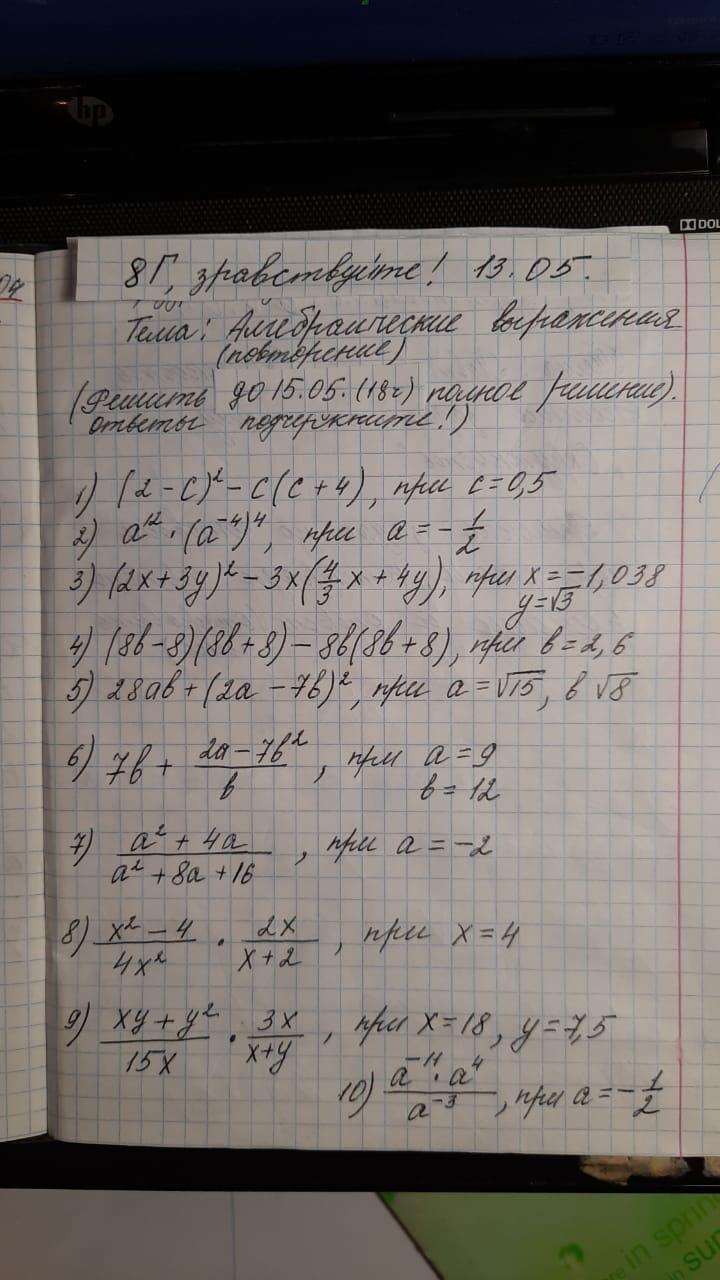 hp
DOL
04
8Г, здравствуйте! 13.05.
Тема: Алгебраические выражения
(повторение)
(Решить до 15.05. (18ч) полное решение).
ответы подчеркните!)
1) (2 - c)² - c(c + 4), при c = 0,5
2) a¹² · (a⁻⁴)⁴, при a = -1/2
3) (2x + 3y)² - 3x(4/3 x + 4y), при x = -1,038
y = √3
4) (8b - 8)(8b + 8) - 8b(8b + 8), при b = 2,6
5) 28ab + (2a - 7b)², при a = √15, b √8
6) 7b + (2a - 7b²)/b, при a = 9
b = 12
7) (a² + 4a)/(a² + 8a + 16), при a = -2
8) (x² - 4)/(4x²) · 2x/(x + 2), при x = 4
9) (xy + y²)/(15x) · 3x/(x + y), при x = 18, y = 7,5
10) (a⁻¹¹ · a⁴)/a⁻³, при a = -1/2
in spring
sum